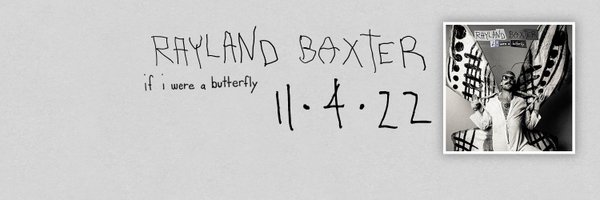 RAYLAND BAXTER
if i were a butterfly
11.4.22
RAYLAND BAXTER
if i were a butterfly